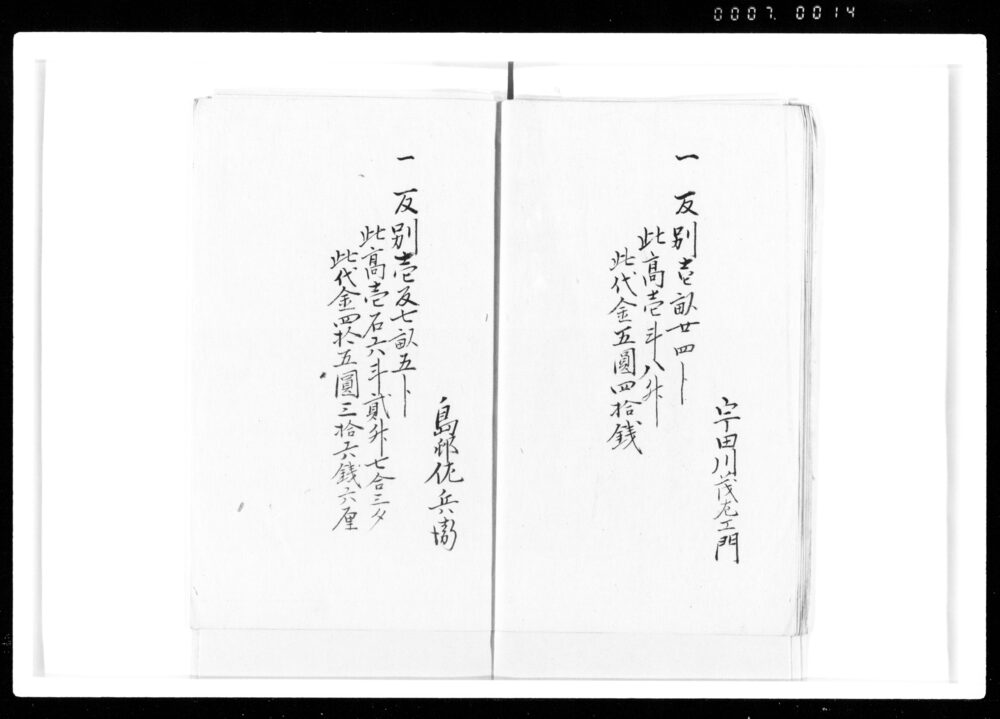 0007 0014
宇田川茂左エ門
一 反別壱畝廿四卜
此高壱斗八升
此代金五圓四拾銭
島邨佐兵衛
一 反別壱反七畝五卜
此高壱石六斗貳升七合三夕
此代金四拾五圓三拾六銭六厘